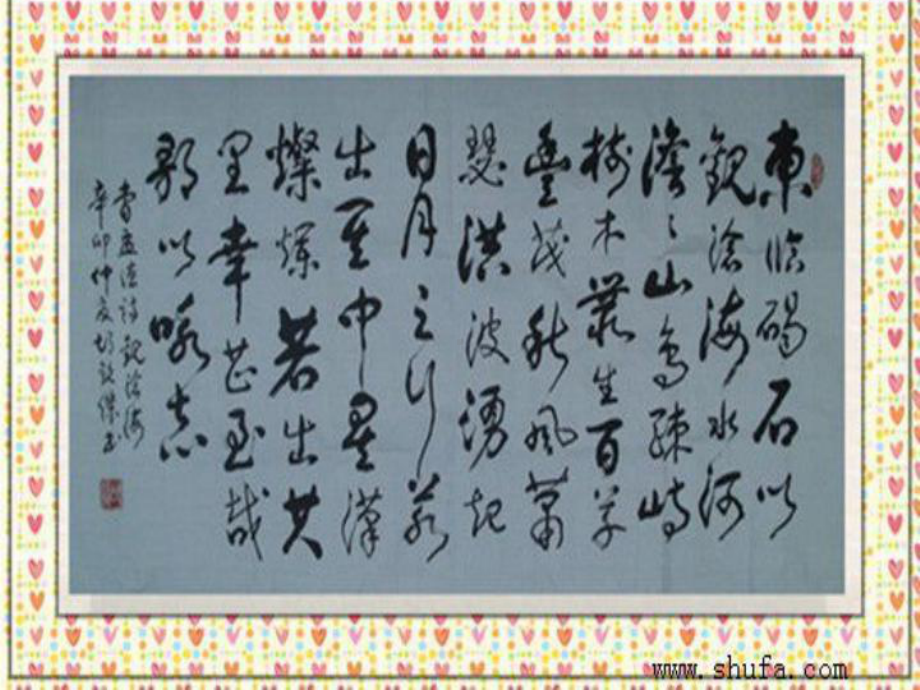 東臨碣石以
觀滄海水河
澹〻山島竦峙
樹木叢生百草
豐茂秋風蕭
瑟洪波湧起
日月之行若
出其中星漢
燦爛若出其
里幸甚至哉
歌以咏志
曹孟德詩觀滄海
辛卯仲夏 書
www.shufa.com